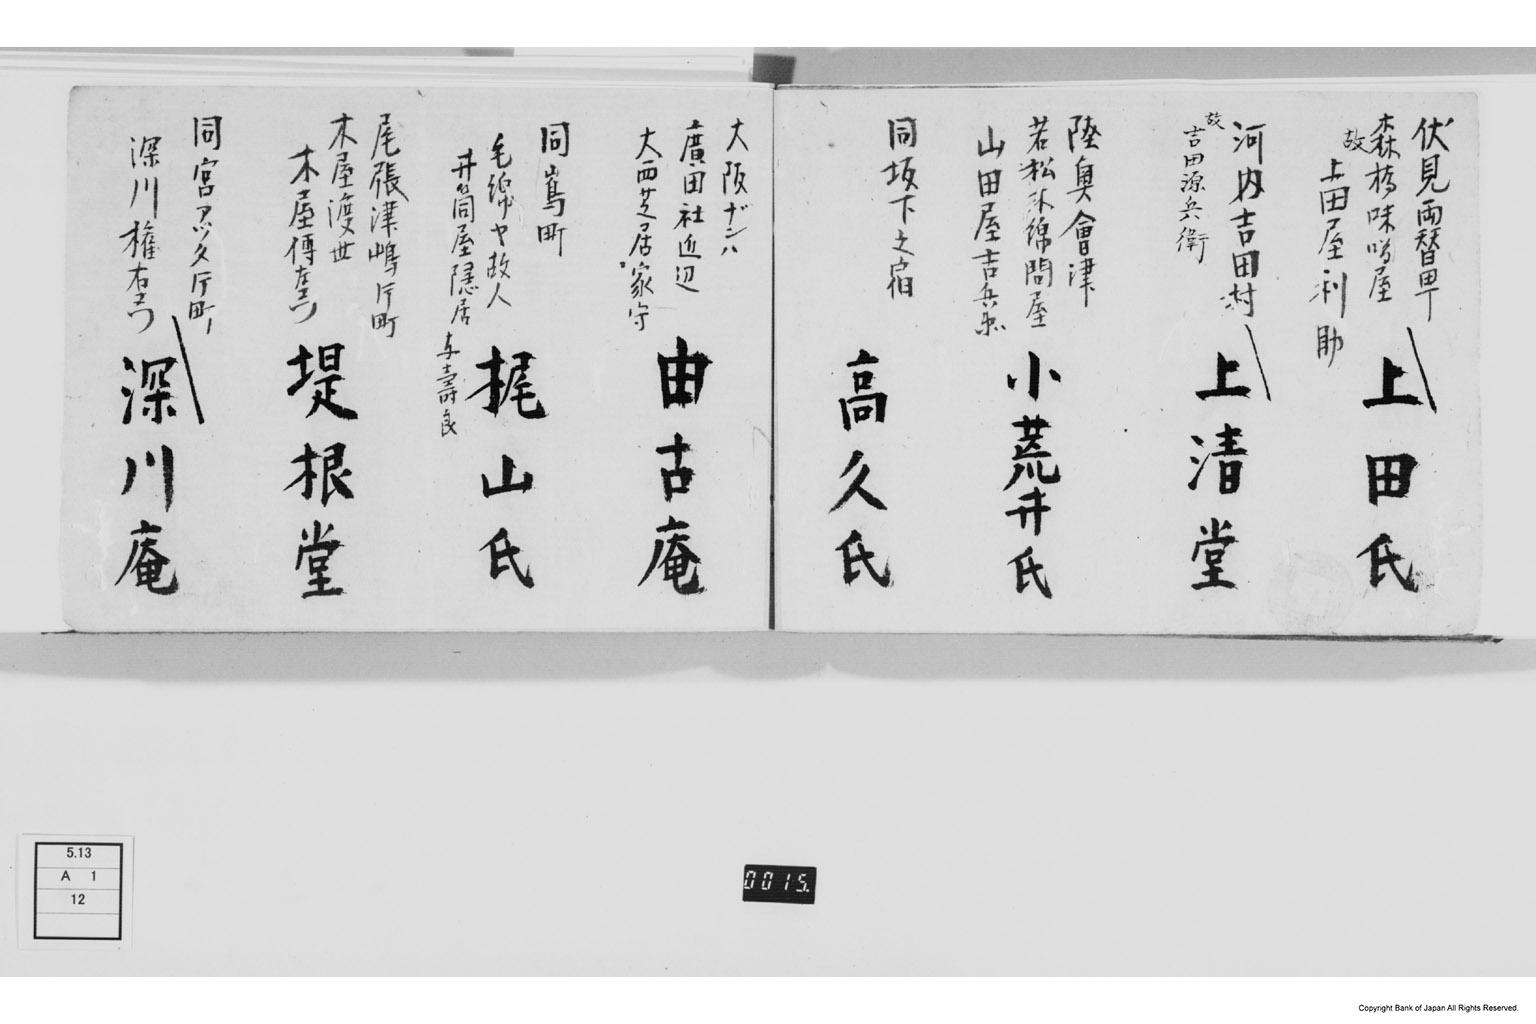 伏見両替町
森橋味噌屋
故
上田屋利助
上田氏
河内吉田村
故
吉田源兵衛
上清堂
陸奥會津
若松木綿問屋
山田屋吉兵衛
小荒井氏
同坂下之宿
高久氏
大阪ナンハ
廣田社近辺
大西芝居家守
由古庵
同嶌町
毛綿ヤ故人
井筒屋隠居
寿良
梶山氏
尾張津嶋片町
木屋渡世
木屋傳左ヱ門
堤根堂
同宮アツタ片町
深川権右ヱ門
深川庵
5.13
A 1
12
0015.
Copyright Bank of Japan All Rights Reserved.